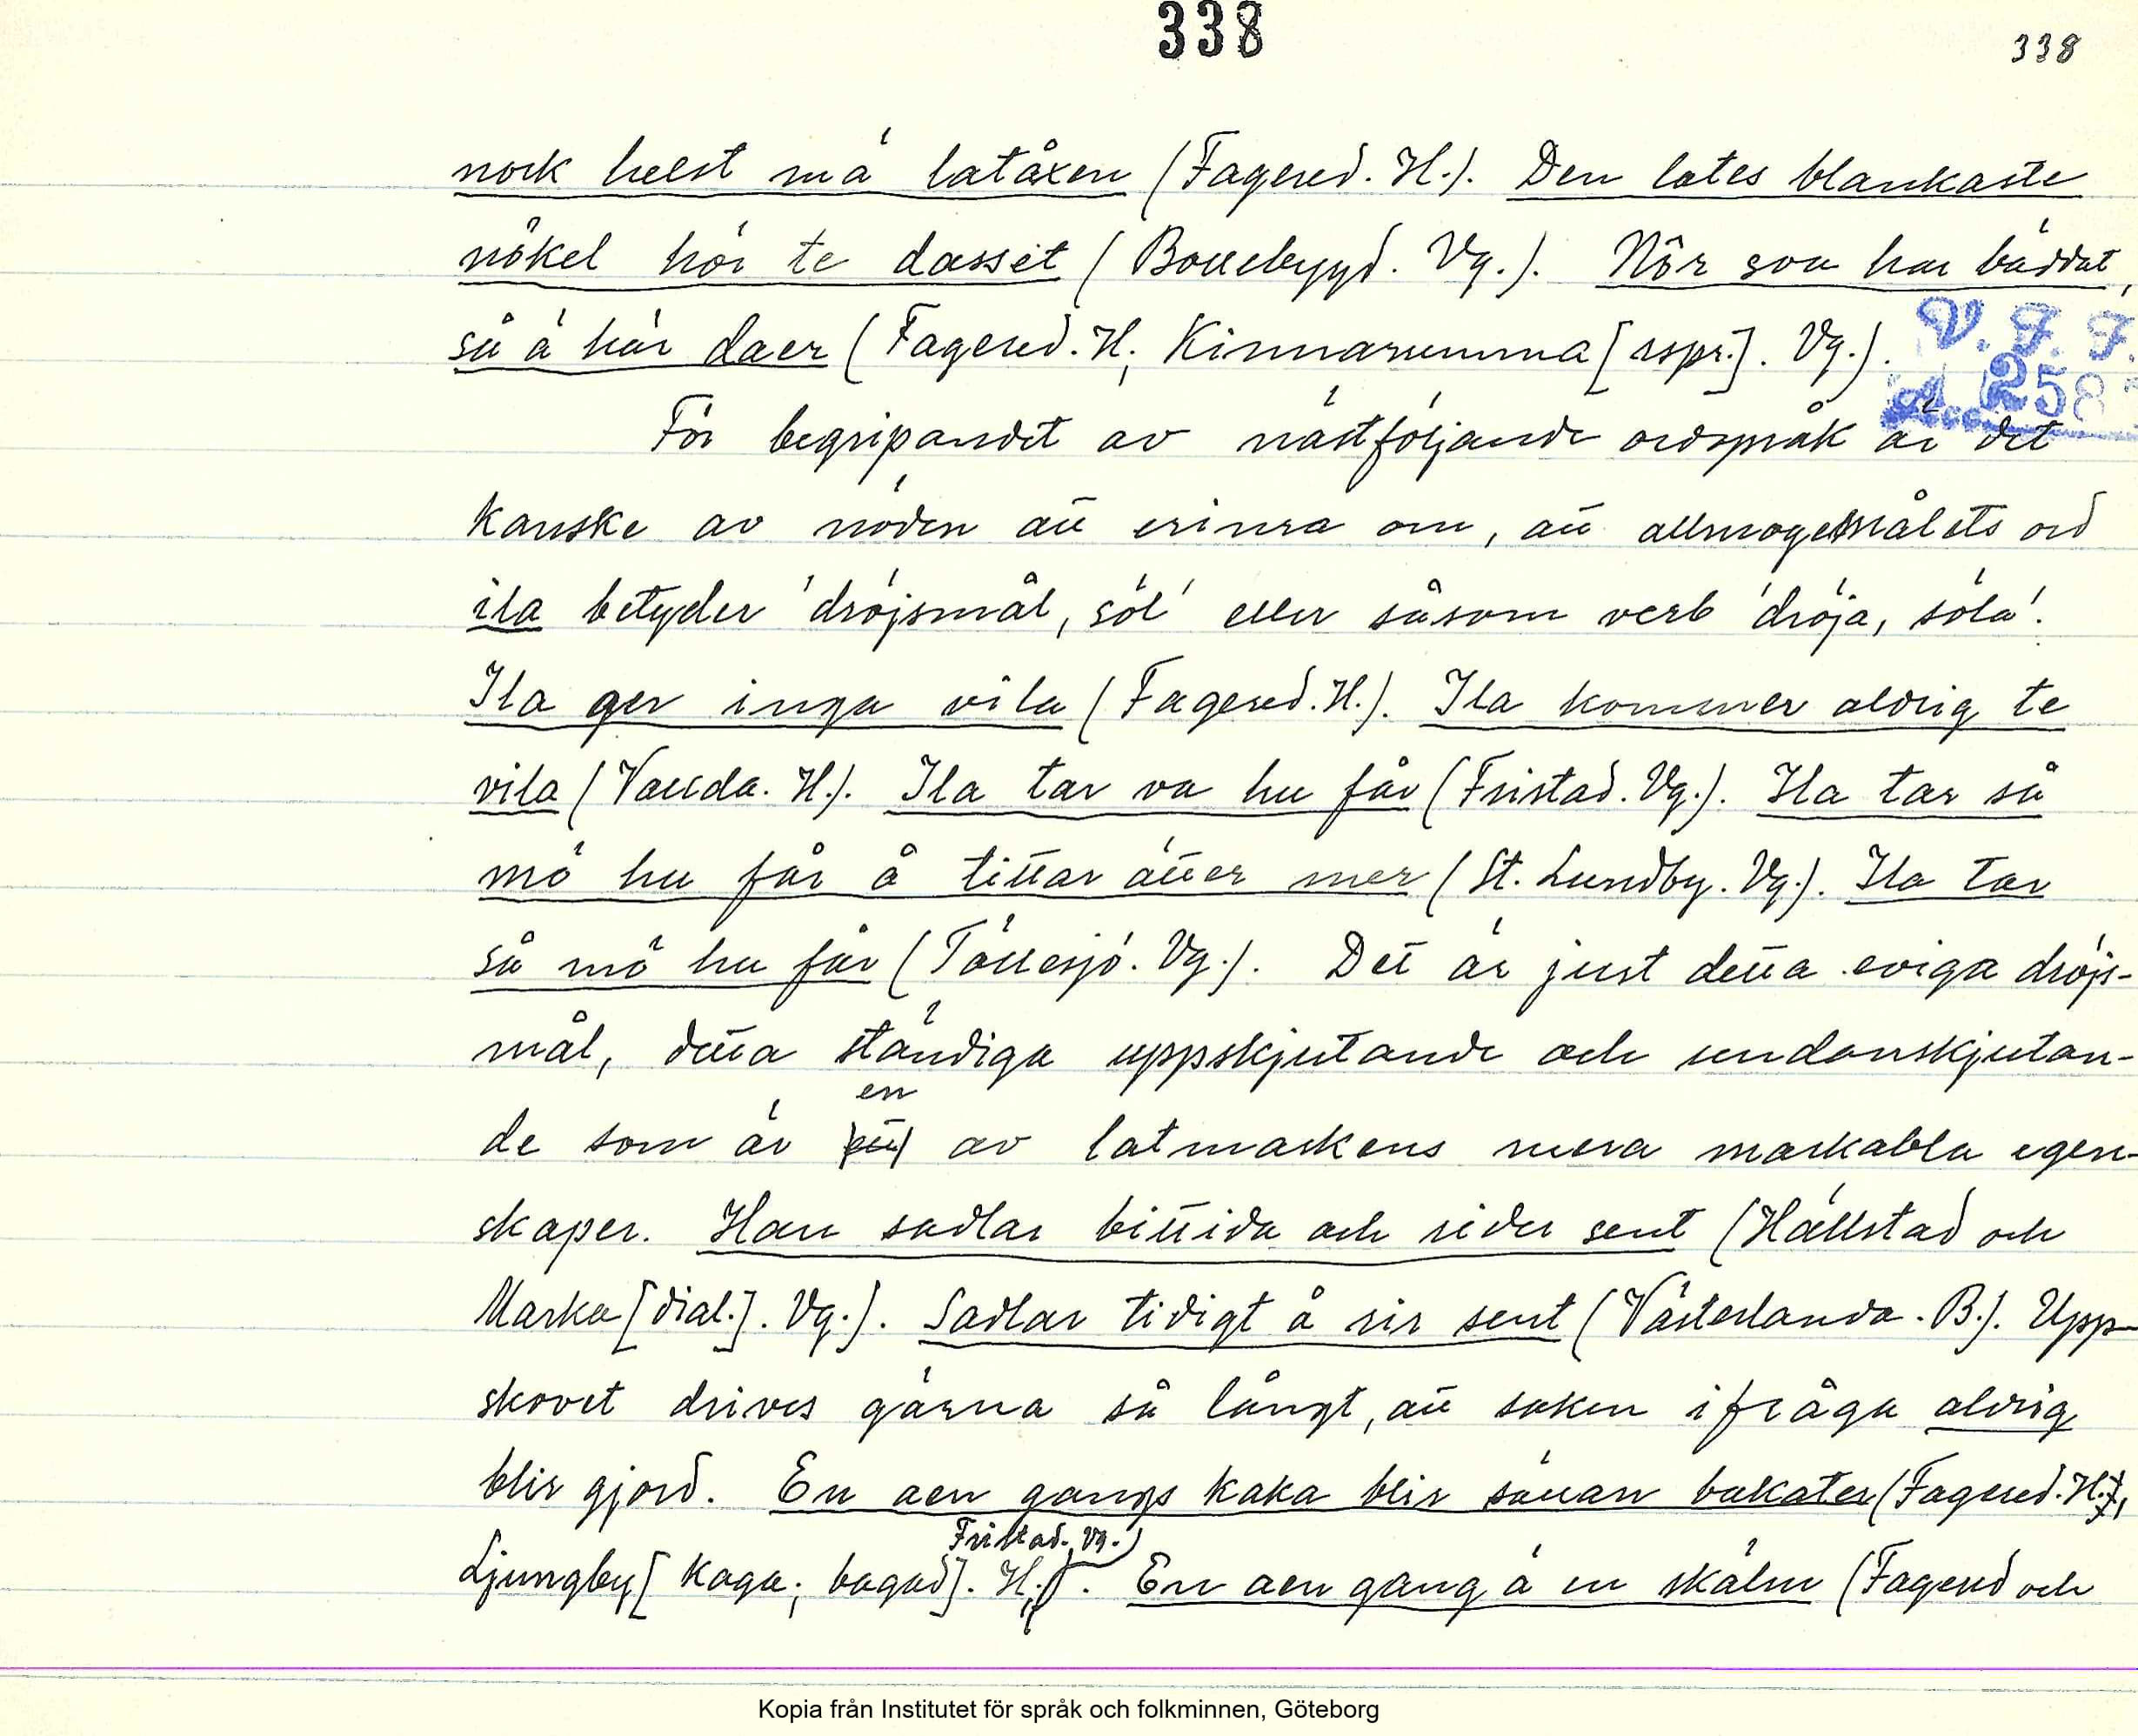 338
338
nock helst mä latåxen (Fagered. H.). Den lates blankaste
nökel hör te dasset (Bollebygd. Vg.). När son har bäddat,
så ä här daer (Fagered. H; Kinnarumma [rspr.]. Vg.).
V. F. F.
258
För begripandet av nästföljande ordspråk är det
kanske av nöden att erinra om, att allmogemålets ord
ila betyder 'dröjsmål, söl' eller såsom verb 'dröja, söla'.
Ila ger inga vila (Fagered. H.). Ila kommer aldrig te
vila (Valida. H.). Ila tar va hu får (Fristad. Vg.). Ila tar så
mö hu får å tittar ätter mer (St. Lundby. Vg.). Ila tar
så mö hu får (Töllesjö. Vg.). Det är just detta eviga dröjs-
mål, detta ständiga uppskjutande och undanskjutan-
en
de som är ett av latmaskens mera markabla egen-
skaper. Han sadlar bittida och rider sent (Hällstad och
Marka [dial.]. Vg.). Sadlar tidigt å rir sent (Västerlanda. B.). Upp-
skovet drives gärna så långt, att saken ifråga aldrig
blir gjord. En aen gangs kaka blir sällan bakater (Fagered. H.),
Fristad. Vg.)
Ljungby [kaga; bagad]. H; . En aen gang ä en skälm (Fagered och
Kopia från Institutet för språk och folkminnen, Göteborg